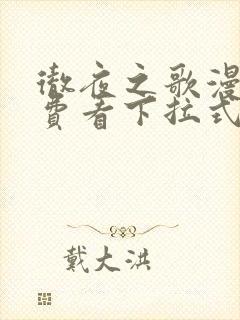 彻夜之歌漫
费看下拉式
戴大洪